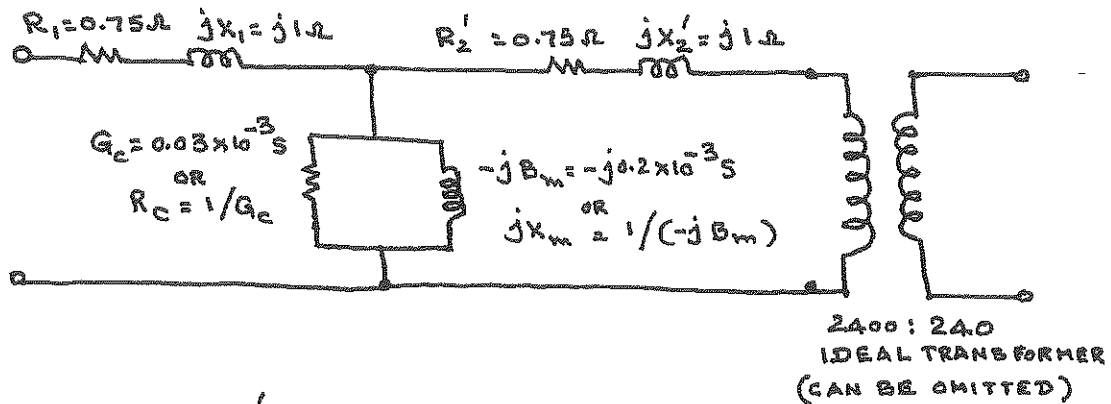 R₁=0.75Ω jX₁=j1Ω R₂'=0.75Ω jX₂'=j1Ω
G_c=0.03×10⁻³S
OR
R_c=1/G_c
-jB_m=-j0.2×10⁻³S
OR
jX_m=1/(-jB_m)
2400:240
IDEAL TRANSFORMER
(CAN BE OMITTED)